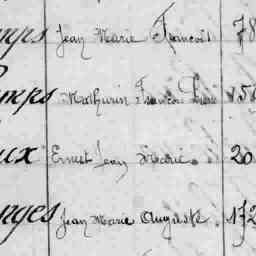 mps Jean Marie François 78
mps Mathurin François Pierre 850
ux Ernest Jean Marie 20
nges Jean Marie Auguste 172